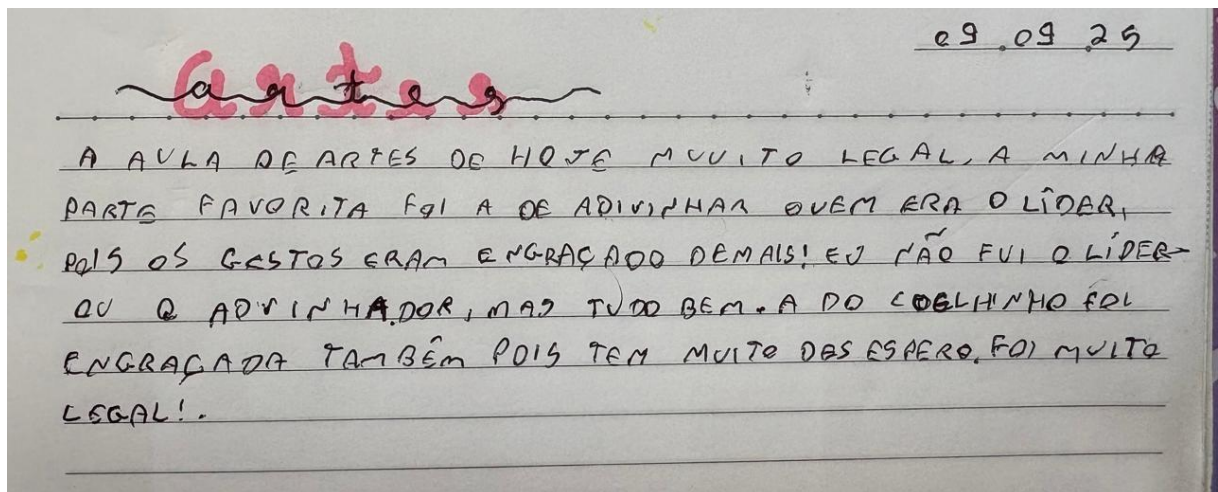 09.09.25
artes
A AULA DE ARTES DE HOJE MUUITO LEGAL, A MINHA
PARTE FAVORITA FOI A DE ADIVINHAR QUEM ERA O LÍDER,
POIS OS GESTOS ERAM ENGRAÇADO DEMAIS! EU NÃO FUI O LÍDER
OU O ADVINHADOR, MAS TUDO BEM. A DO COELHINHO FOI
ENGRAÇADA TAMBÉM POIS TEM MUITO DESESPERO. FOI MUITO
LEGAL!.